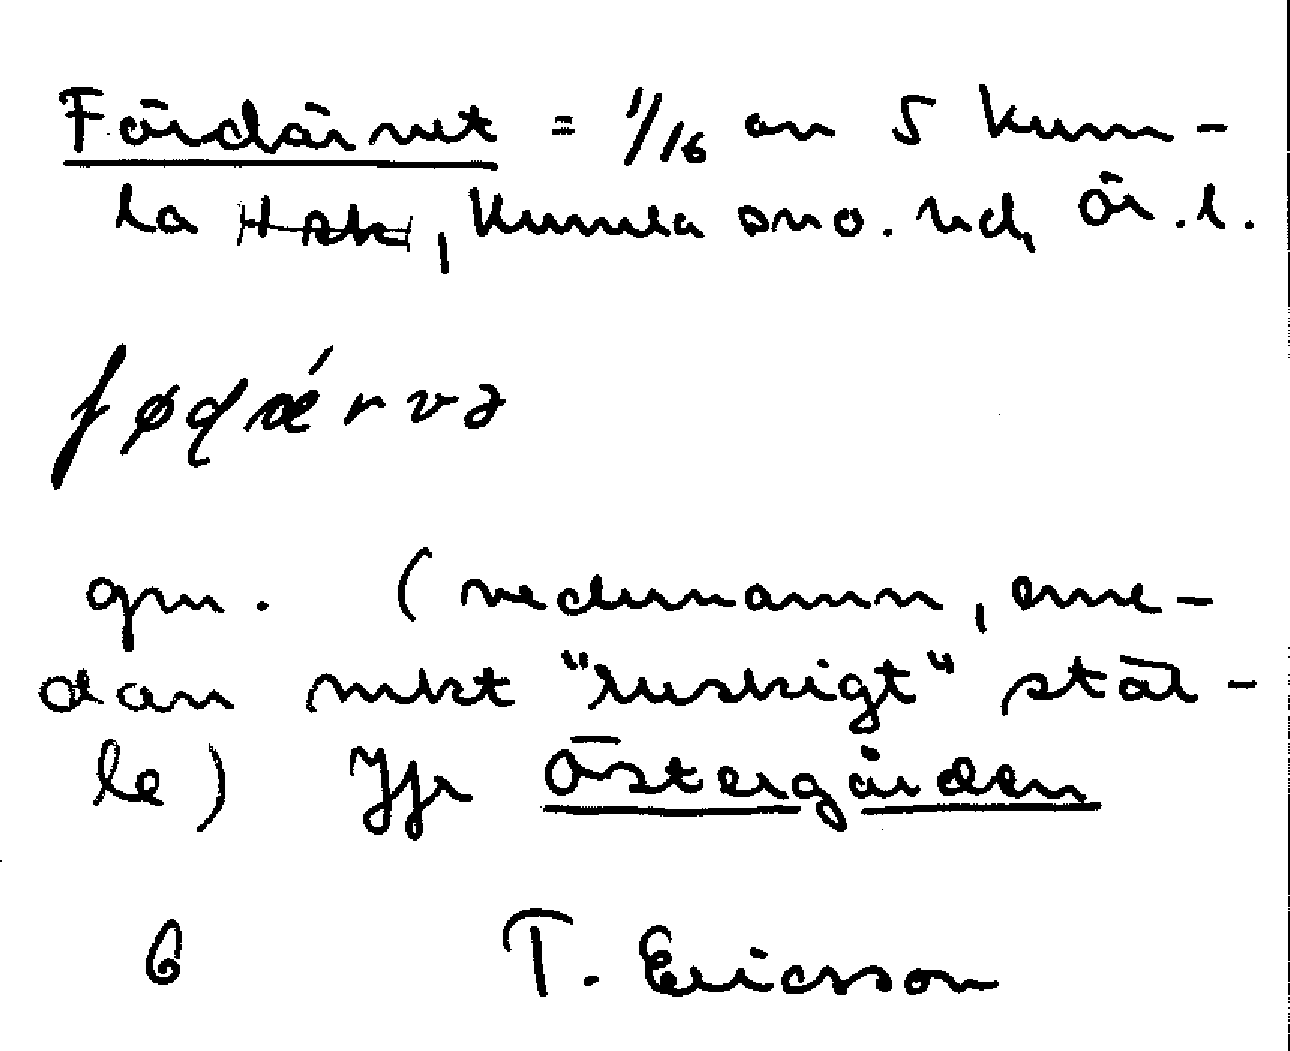 Fördärvet = 1/16 av 5 Kum-
la Hsk, Kumla sn o. hd, Ör. l.
føḍǽrvə
gm. (vedernamn, eme-
dan mkt "ruskigt" stäl-
le) Jfr Östergården
6 T. Ericsson